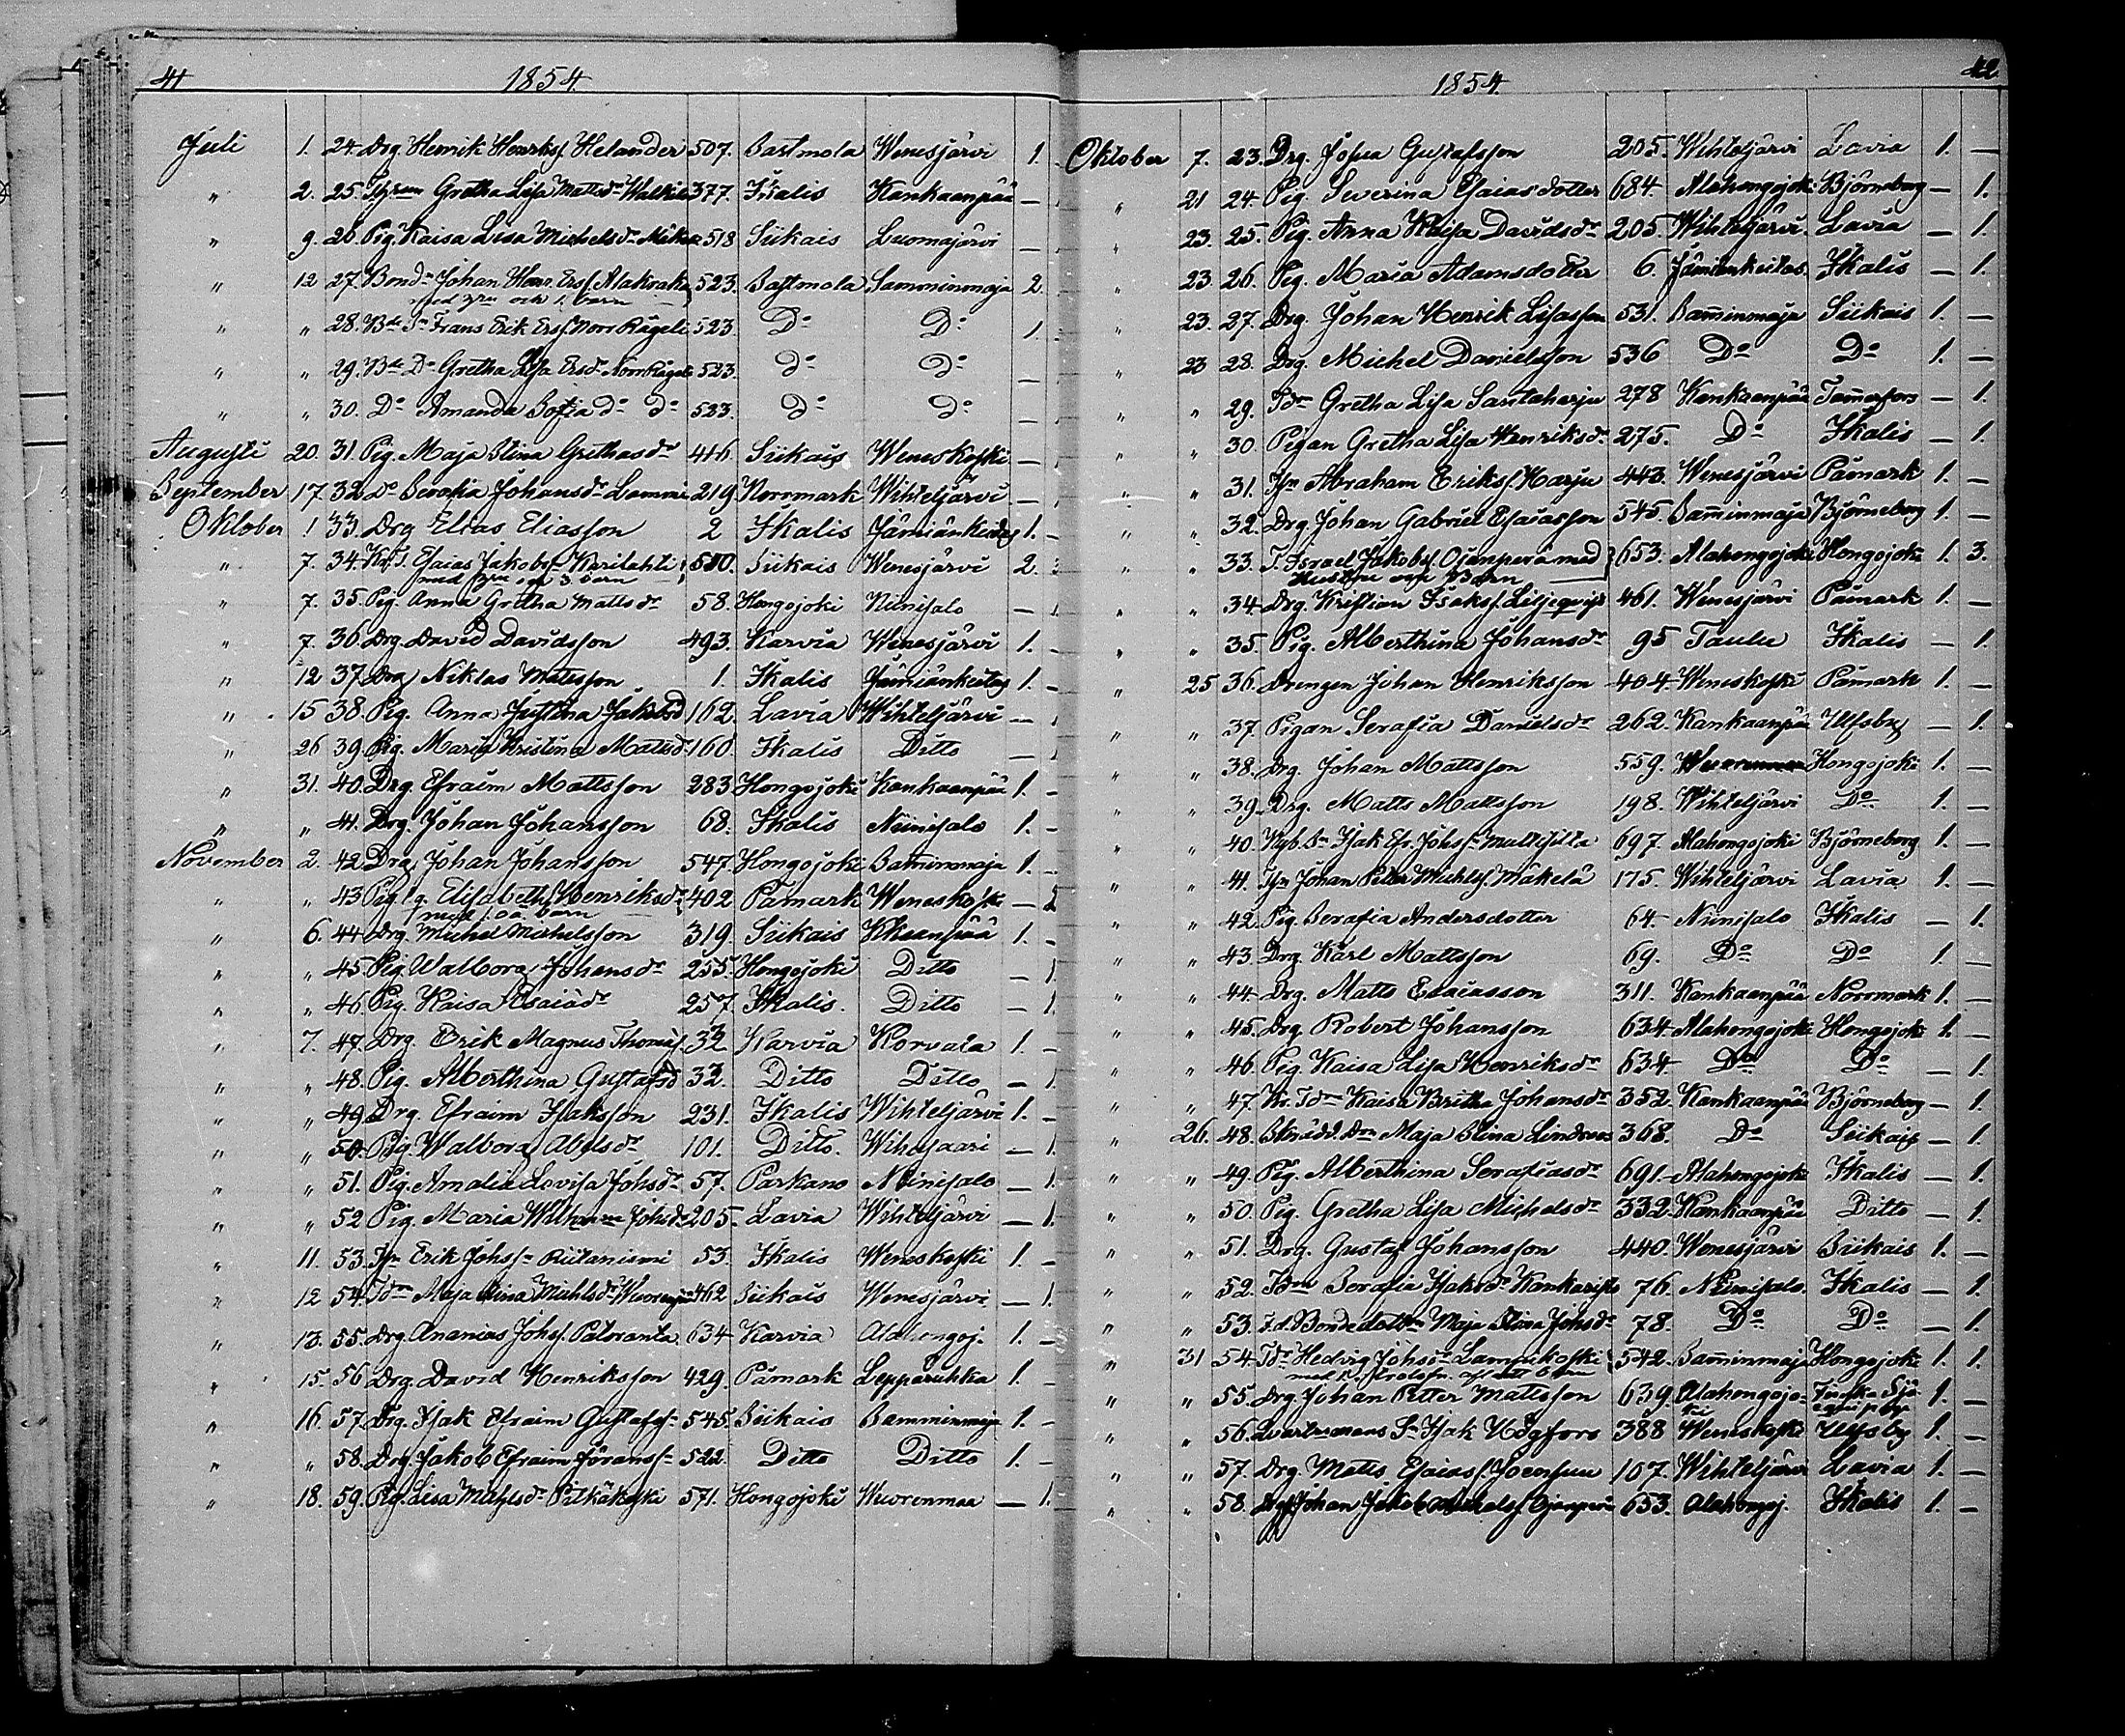 41 1854.
Juli 1. 24. Drg. Henrik Henriks. Helander 507. Bastmola Wenesjärvi 1.
" 2. 25. Gretha Lisa Mattsdr 377. Ikalis Kankaanpää —
" 9. 26. Pig. Kaisa Lisa Michelsdr 518 Siikais Luomajärvi —
" 12 27. Bonden Johan Henr. Ersf. Alakoska 523. Bastmola Samminmaja 2.
med hru och 1. barn
" " 28. Frans Erik Ersf. Norr Rägeli 523 Do Do 1.
" " 29. Do Gretha Lisa Ersdr Norr Rägeli 523. Do Do —
" " 30. Do Amanda Sofia do do 523. Do Do —
Augusti 20. 31. Pig. Maja Stina Grethasdr 416 Siikais Weneskoski —
September 17. 32. Do Serafia Johansdr Lammi 219. Norrmark Wihteljärvi —
Oktober 1 33. Drg Elias Eliasson 2 Ikalis Jämiänkeidas 1. —
" 7. 34. Esaias Jakobss. Karilahti 580. Siikais Wenesjärvi 2.
med hru och 3 barn
" 7. 35. Pig. Anna Gretha Mattsdr 58. Hongojoki Niinisalo —
" 7. 36. Drg. David Davidsson 493. Karvia Wenesjärvi 1. —
" 12 37. Drg Niklas Mattsson 1. Ikalis Jämiänkeitas 1. —
" 15 38. Pig. Anna Justina Jakobsd 162. Lavia Wihteljärvi —
" 26 39. Pig. Maria Kristina Mattsd. 160. Ikalis Ditto —
" 31. 40. Drg. Efraim Mattsson 283 Hongojoki Kankaanpää 1. —
" " 41. Drg. Johan Johansson 68. Ikalis Niinisalo 1. —
November 2. 42. Drg Johan Johansson 547. Hongojoki Bamminmaja 1. —
" " 43 Elisabeth Henriksdr 402 Påmark Weneskoski —
med 1 oä. barn
" 6. 44 Drg. Michel Michelsson 319. Siikais Kkaanpää 1. —
" " 45 Pig. Walborg Johansdr 255. Hongojoki Ditto — 1.
" " 46 Pig. Kaisa Esaiädr 257. Ikalis. Ditto — 1.
" 7. 47. Drg. Erik Magnus Thomass. 32 Karvia Korvala 1. —
" " 48. Pig. Alberthina Gustafsd 32. Ditto Ditto — 1.
" " 49 Drg. Efraim Isaksson 231. Ikalis Wihteljärvi 1. —
" " 50. Pig. Walborg Abelsdr 101. Ditto. Wihusaari — 1.
" " 51. Pig. Amalia Lovisa Johsdr 57. Parkano Niinisalo — 1.
" " 52 Pig. Maria Johsdr 205. Lavia Wihteljärvi — 1.
" 11. 53. Erik Johss. Riitaniemi 53. Ikalis Weneskoski 1. —
" 12 54. Maja Stina Michlsdr 462 Siikais Wenesjärvi — 1.
" 13. 55. Drg. Ananias Johss. Paloranta. 634 Karvia Alahongoj. 1. —
" 15. 56 Drg. David Henriksson 429. Påmark Leppäruhka 1. —
" 16. 57. Drg. Isak Efraim Gustafss. 545. Siikais Bamminmaja 1. —
" " 58. Drg. Jakob Efraim Göranss. 522. Ditto Ditto 1. —
" 18. 59. Pig. Lisa Michlsdr Pitkäkoski 571. Hongojoki Wuorenmaa — 1.
1854. 42.
Oktober 7. 23. Drg. Josua Gustafsson 205. Wihteljärvi Lavia 1. —
" 21 24. Pig. Severina Esaiasdotter 684. Alahongojoki Björneborg — 1.
" 23. 25. Pig. Anna Kaisa Davidsdr 205. Wihteljärvi. Lavia — 1.
" 23 26. Pig. Maria Adamsdotter 6. Jämiänkeitas. Ikalis — 1.
" 23. 27. Drg. Johan Henrik Lisasson 531. Bamminmaja Siikais 1. —
" 23 28. Drg. Michel Danielsson 536 Do Do 1. —
" " 29. Gretha Lisa Santaharju 278 Kankaanpää Tammerfors — 1.
" " 30 Pigan Gretha Lisa Henriksdr 275. Do Ikalis — 1.
" " 31. Abraham Erikss. Harju 443. Wenesjärvi Påmark 1. —
" " 32. Drg. Johan Gabriel Esaiasson 545. Bamminmaja Björneborg 1. —
" " 33. T. Israel Jakobs. Ojanperä med 653. Alahongojoki Hongojoki 1. 3.
hustru och barn
" " 34. Drg. Kristian Isakss. Liljeqvist 461. Wenesjärvi Påmark 1. —
" " 35. Pig. Alberthina Johansdr 95 Taulu Ikalis — 1.
" 25 36. Drengen Johan Henriksson 404. Weneskoski Påmark 1. —
" " 37. Pigan Serafia Danielsdr 262. Kankaanpää Ulfsby — 1.
" " 38. Drg. Johan Mattsson 559. Hongojoki 1. —
" " 39. Drg. Matts Mattsson 198. Wihteljärvi Do 1. —
" " 40. Isak Efr. Johss. Multisilta 697. Alahongojoki Björneborg 1. —
" " 41. Johan Petter Michlss. Mäkelä 175. Wihteljärvi Lavia 1. —
" " 42. Pig. Serafia Andersdotter 64. Niinisalo Ikalis — 1.
" " 43. Drg. Karl Mattsson 69. Do Do 1. —
" " 44 Drg. Matts Esaiasson 311. Kankaanpää Norrmark 1. —
" " 45. Drg. Robert Johansson 634. Alahongojoki Hongojoki 1. —
" " 46. Pig. Kaisa Lisa Henriksdr 634 Do Do — 1.
" " 47. Kaisa Britha Johansdr 352. Kankaanpää Björneborg — 1.
" 26. 48. Maja Stina Lindroos 368. Do Siikais — 1.
" " 49. Pig. Alberthina Serafiasdr 691. Alahongojoki Ikalis — 1.
" " 50. Pig. Gretha Lisa Michelsdr 332. Kankaanpää Ditto — 1.
" " 51. Drg. Gustaf Johansson 440. Wenesjärvi Siikais 1. —
" " 52. Serafia Isaksdr 76. Niinisalo. Ikalis — 1.
" " 53. Bondedottern Maja Stina Johsdr 78. Do Do — 1.
" 31 54. Hedvig Johsdr Lamminkoski 542. Bamminmaja Hongojoki 1. 1.
" " 55. Drg. Johan Petter Mattsson 639. Alahongojo- 1. —
ki
" " 56. Isak Högfors 388 Weneskoski Ulfsby 1. —
" " 57. Drg. Matts Esaiass. 107. Wihteljärvi Lavia 1. —
" " 58. Johan Jakob Ojanperä 653. Alahongoj. Ikalis 1. —